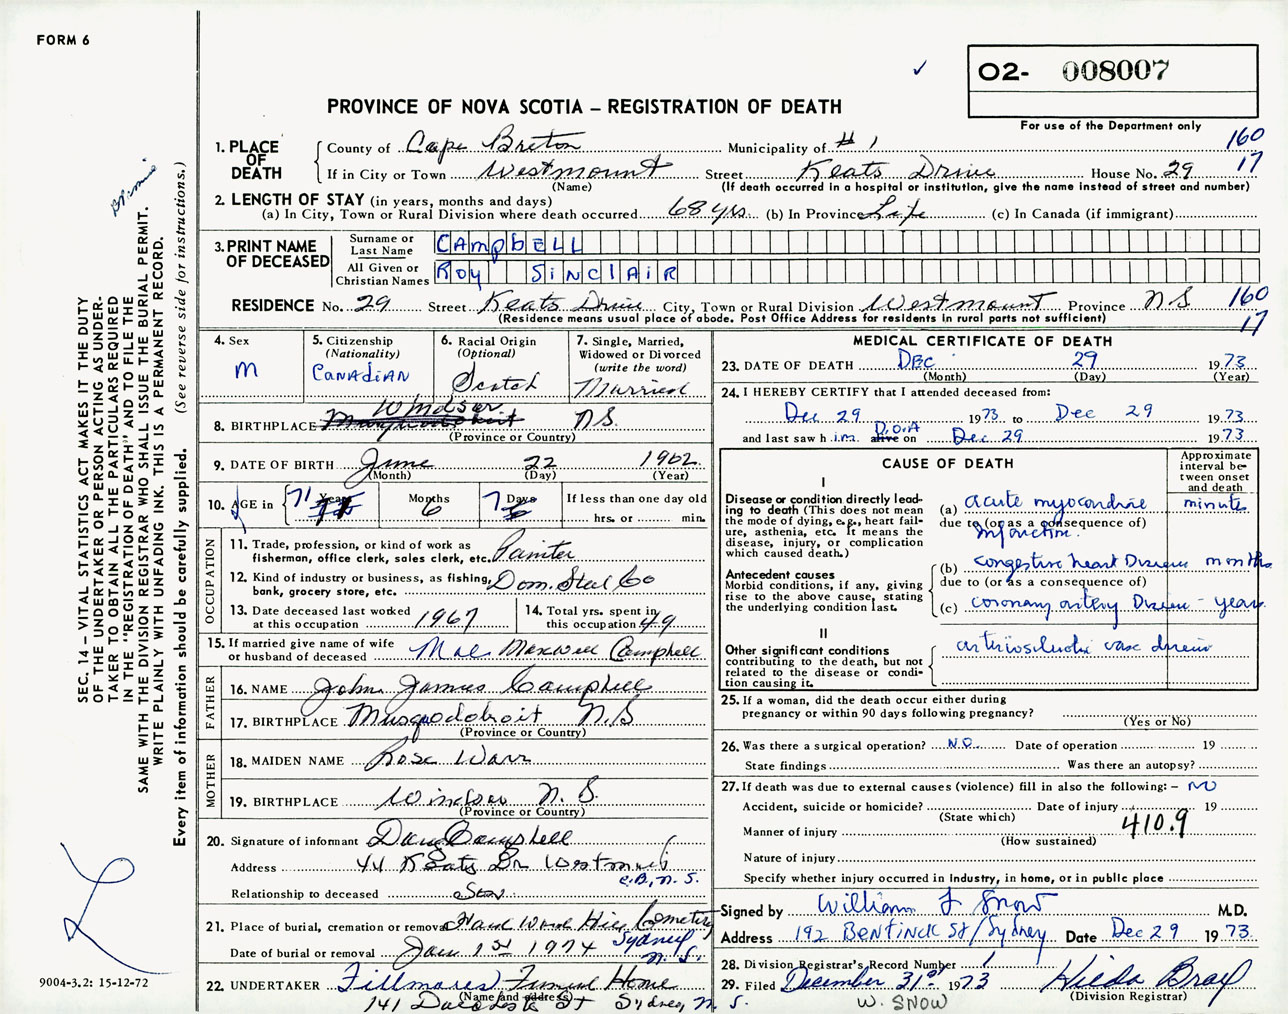 FORM 6
O2- 008007
✓
PROVINCE OF NOVA SCOTIA – REGISTRATION OF DEATH
For use of the Department only
160
17
1. PLACE OF DEATH
County of Cape Breton Municipality of # 1
If in City or Town Westmount Street Keats Drive House No. 29
(Name) (If death occurred in a hospital or institution, give the name instead of street and number)
2. LENGTH OF STAY (in years, months and days)
(a) In City, Town or Rural Division where death occurred 68 yrs. (b) In Province Life (c) In Canada (if immigrant)
3. PRINT NAME OF DECEASED
Surname or Last Name CAmpbELL
All Given or Christian Names ROy SINCLAIR
RESIDENCE No. 29 Street Keats Drive City, Town or Rural Division Westmount Province N S
160
17
(Residence means usual place of abode. Post Office Address for residents in rural parts not sufficient)
4. Sex
M
5. Citizenship
(Nationality)
CANADIAN
6. Racial Origin
(Optional)
Scotch
7. Single, Married,
Widowed or Divorced
(write the word)
Married
8. BIRTHPLACE Windsor N.S.
(Province or Country)
9. DATE OF BIRTH June 22 1902
(Month) (Day) (Year)
10. AGE in 71 Years
Months 6
Days 7
If less than one day old
hrs. or min.
OCCUPATION
11. Trade, profession, or kind of work as
fisherman, office clerk, sales clerk, etc. Painter
12. Kind of industry or business, as fishing,
bank, grocery store, etc. Dom. Steel Co
13. Date deceased last worked
at this occupation 1967
14. Total yrs. spent in
this occupation 49
15. If married give name of wife
or husband of deceased Mae Maxwell Campbell
FATHER
16. NAME John James Campbell
17. BIRTHPLACE Musquodoboit N.S
(Province or Country)
MOTHER
18. MAIDEN NAME Rose Warr
19. BIRTHPLACE Windsor N.S.
(Province or Country)
20. Signature of informant Campbell
Address 44 Keats Dr Westmount
C.B., N.S.
Relationship to deceased Son
21. Place of burial, cremation or removal Hard Wood Hill Cemetery
Sydney N.S.
Date of burial or removal Jan 1st 1974
22. UNDERTAKER Fillmores Funeral Home
(Name and address)
141 St Sydney, N.S.
MEDICAL CERTIFICATE OF DEATH
23. DATE OF DEATH DEC 29 1973
(Month) (Day) (Year)
24. I HEREBY CERTIFY that I attended deceased from:
Dec 29 1973 to Dec 29 1973
and last saw h im alive D.O.A on Dec 29 1973
CAUSE OF DEATH
Approximate interval between onset and death
I
Disease or condition directly leading to death (This does not mean the mode of dying, e.g., heart failure, asthenia, etc. It means the disease, injury, or complication which caused death.)
(a) acute myocardial minutes
due to (or as a consequence of)
infarction.
Antecedent causes
Morbid conditions, if any, giving rise to the above cause, stating the underlying condition last.
(b) congestive heart Disease months
due to (or as a consequence of)
(c) coronary artery Disease - years
II
Other significant conditions contributing to the death, but not related to the disease or condition causing it.
25. If a woman, did the death occur either during
pregnancy or within 90 days following pregnancy?
(Yes or No)
26. Was there a surgical operation? NO Date of operation 19
State findings Was there an autopsy?
27. If death was due to external causes (violence) fill in also the following: – NO
Accident, suicide or homicide? Date of injury 19
(State which)
410.9
Manner of injury
(How sustained)
Nature of injury
Specify whether injury occurred in Industry, in home, or in public place
Signed by William F Snow M.D.
Address 192 BENTINCK St/Sydney Date Dec 29 1973
28. Division Registrar's Record Number 1
29. Filed December 31st 1973 Hilda Bray
(Division Registrar)
W. SNOW
SEC. 14 – VITAL STATISTICS ACT MAKES IT THE DUTY
OF THE UNDERTAKER OR PERSON ACTING AS UNDER-
TAKER TO OBTAIN ALL THE PARTICULARS REQUIRED
IN THE "REGISTRATION OF DEATH" AND TO FILE THE
SAME WITH THE DIVISION REGISTRAR WHO SHALL ISSUE THE BURIAL PERMIT.
WRITE PLAINLY WITH UNFADING INK. THIS IS A PERMANENT RECORD.
Every item of information should be carefully supplied. (See reverse side for instructions.)
9004-3.2: 15-12-72